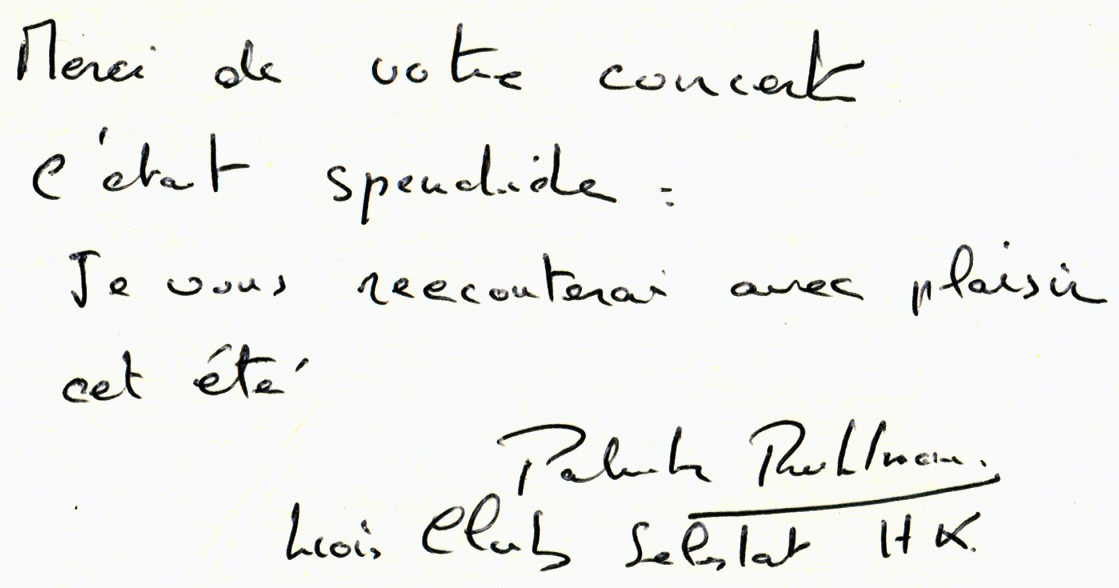 Merci de votre concert
c'était spendide :
Je vous reecouterai avec plaisir
cet été
Patrick Ruhlman.
Lions Club Selestat H K.